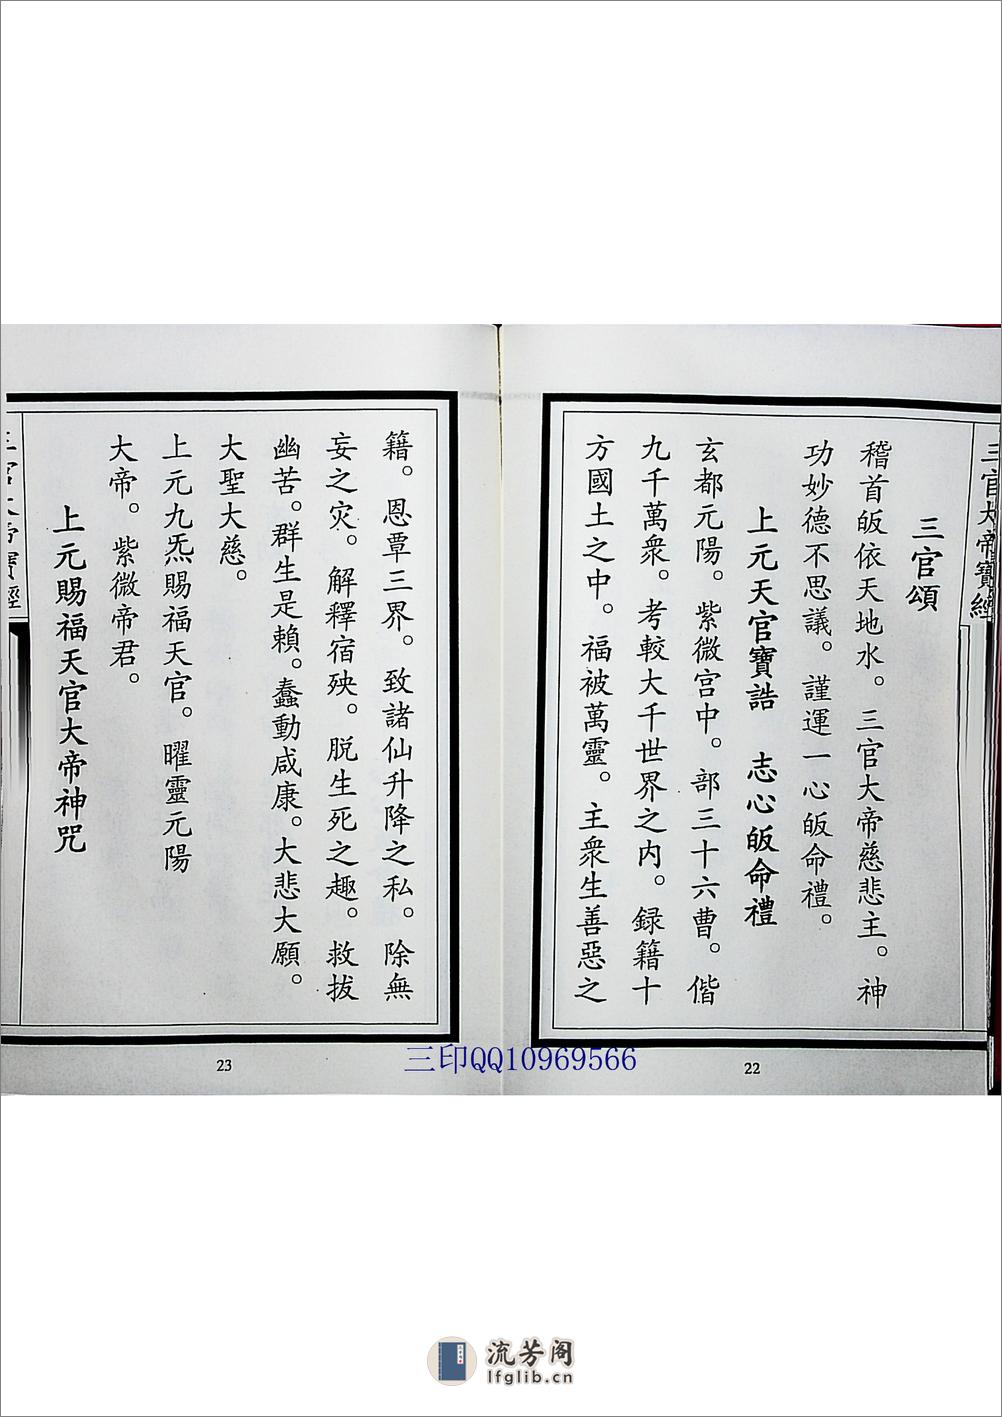 三官大帝寶經
三官頌
稽首皈依天地水。三官大帝慈悲主。神
功妙德不思議。謹運一心皈命禮。
上元天官寶誥　志心皈命禮
玄都元陽。紫微宫中。部三十六曹。偕
九千萬衆。考較大千世界之内。録籍十
方國土之中。福被萬靈。主衆生善惡之
22
籍。恩覃三界。致諸仙升降之私。除無
妄之灾。解釋宿殃。脱生死之趣。救拔
幽苦。群生是賴。蠢動咸康。大悲大願。
大聖大慈。
上元九炁賜福天官。曜靈元陽
大帝。紫微帝君。
上元賜福天官大帝神咒
三官大帝寶經
23
三印QQ10969566
流芳阁
lfglib.cn